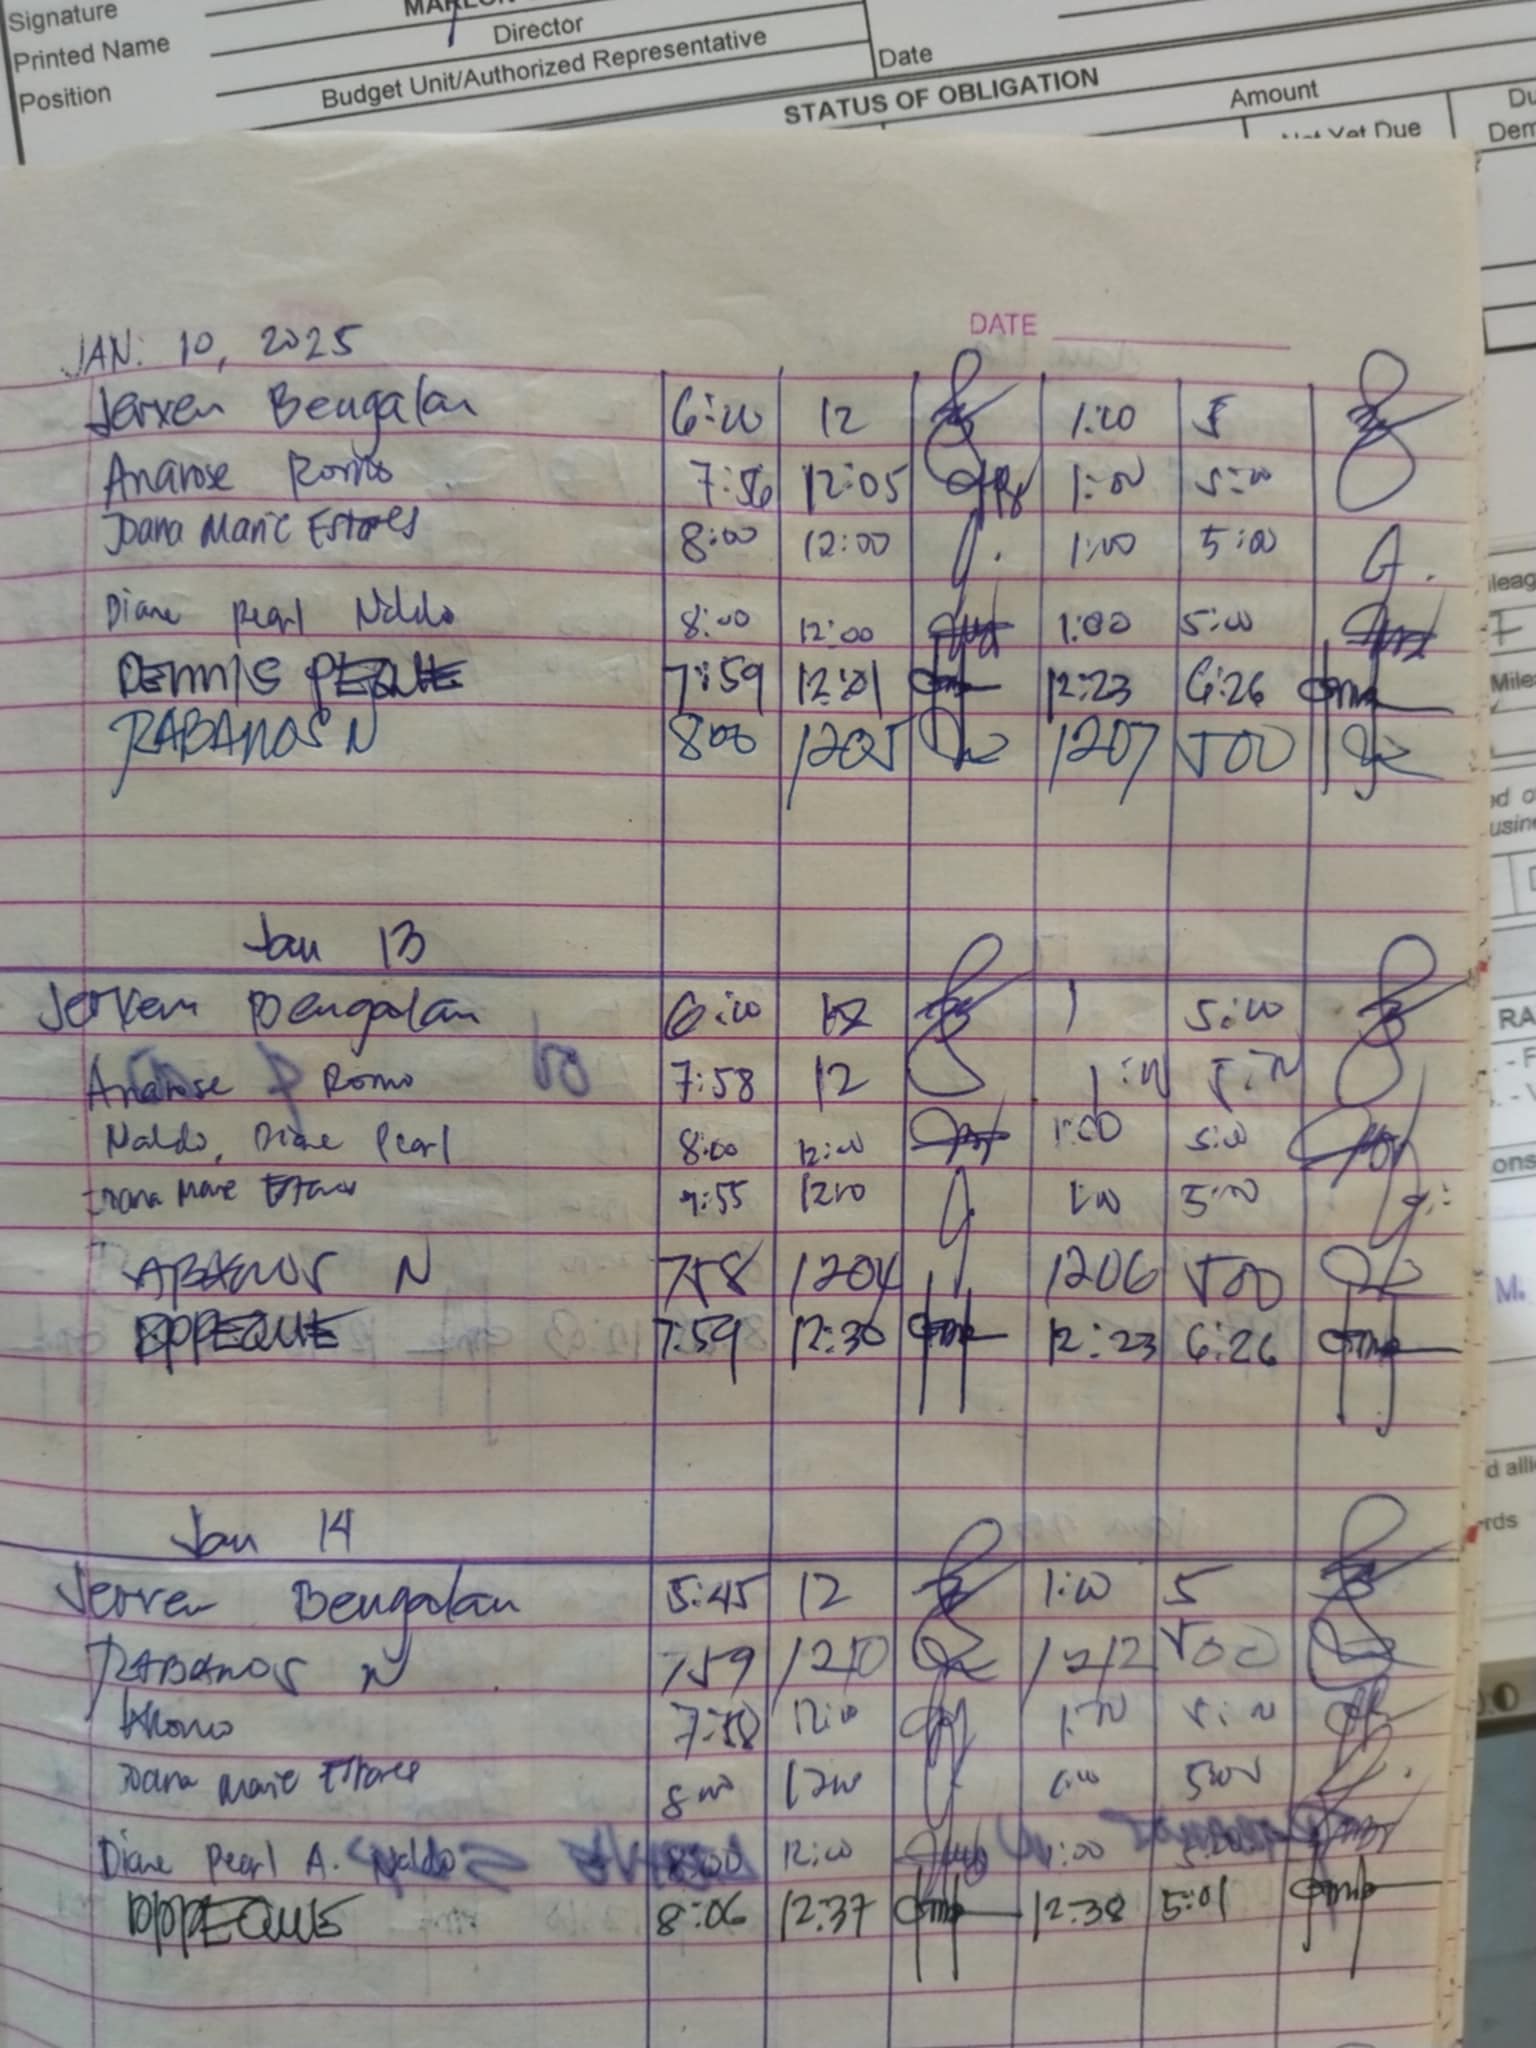 Signature
Printed Name
Director
Position
Budget Unit/Authorized Representative
Date
STATUS OF OBLIGATION
Amount
Not Yet Due
DATE
JAN. 10, 2025
Jerxen Bengalan 6:00 12 1:00 5
Anarose Romo 7:56 12:05 1:00 5:00
Joana Marie Estores 8:00 12:00 1:00 5:00
Diane Pearl Naldo 8:00 12:00 1:00 5:00
DENNIS PEQUE 7:59 12:01 12:23 6:26
RABANOS N 800 1205 1207 500
Jan 13
Jerxen Bengalan 6:00 12 1 5:00
Anarose Romo 7:58 12 1:00 5:00
Naldo, Diane Pearl 8:00 12:00 1:00 5:00
Joana Marie Estores 7:55 1200 1:00 5:00
RABANOS N 758 1204 1206 500
DPPEQUE 7:59 12:30 12:23 6:26
Jan 14
Jerxen Bengalan 5:45 12 1:00 5
RABANOS N 759 1210 1212 500
7:58 12:00 1:00 5:00
Joana Marie Estores 800 1200 1:00 500
Diane Pearl A. Naldo 8:00 12:00 1:00
DPPEQUE 8:06 12:37 12:38 5:01